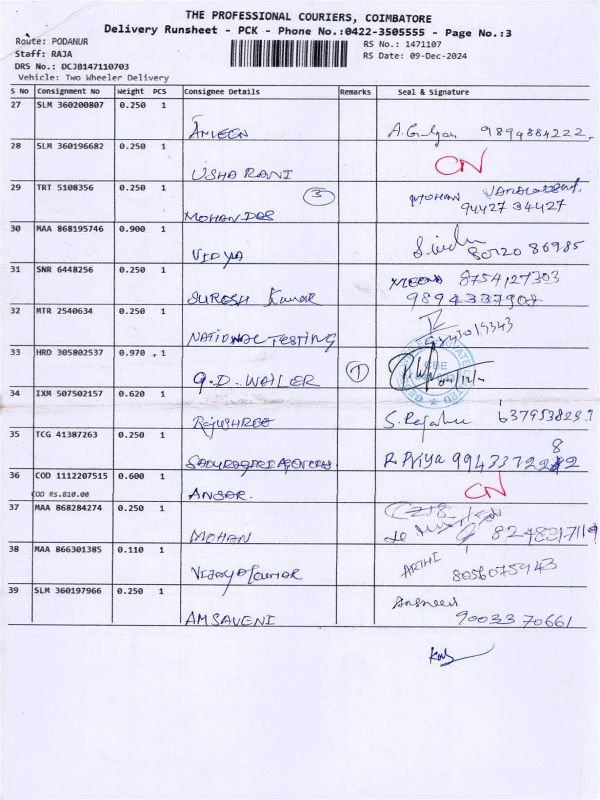 THE PROFESSIONAL COURIERS, COIMBATORE
Delivery Runsheet - PCK - Phone No.:0422-3505555 - Page No.:3
Route: PODANUR
RS No.: 1471107
Staff: RAJA
RS Date: 09-Dec-2024
DRS No.: DCJB147110703
Vehicle: Two Wheeler Delivery
S No Consignment No Weight PCS Consignee Details Remarks Seal & Signature
27 SLM 360200807 0.250 1
AMEEN 9894884222
28 SLM 360196682 0.250 1
USHA RANI CN
29 TRT 5108356 0.250 1
MOHAN DAS 3 MOHAN 94427 34427
30 MAA 868195746 0.900 1
VIDYA 80120 86985
31 SNR 6448256 0.250 1
SURESH Kumar MEENA 8754127303
32 MTR 2540634 0.250 1
NATIONAL TESTING
33 HRD 305802537 0.970 1
G.D. WAILER 1
34 IXM 507502157 0.620 1
RAJUSHREE
35 TCG 41387263 0.250 1
R Priya
36 COD 1112207515 0.600 1
COD RS.810.00
ANSAR. CN
37 MAA 868284274 0.250 1
MOHAN
38 MAA 866301385 0.110 1
VIJAYA KUMAR ARTHI 8056075943
39 SLM 360197966 0.250 1
AMSAVENI 90033 70661